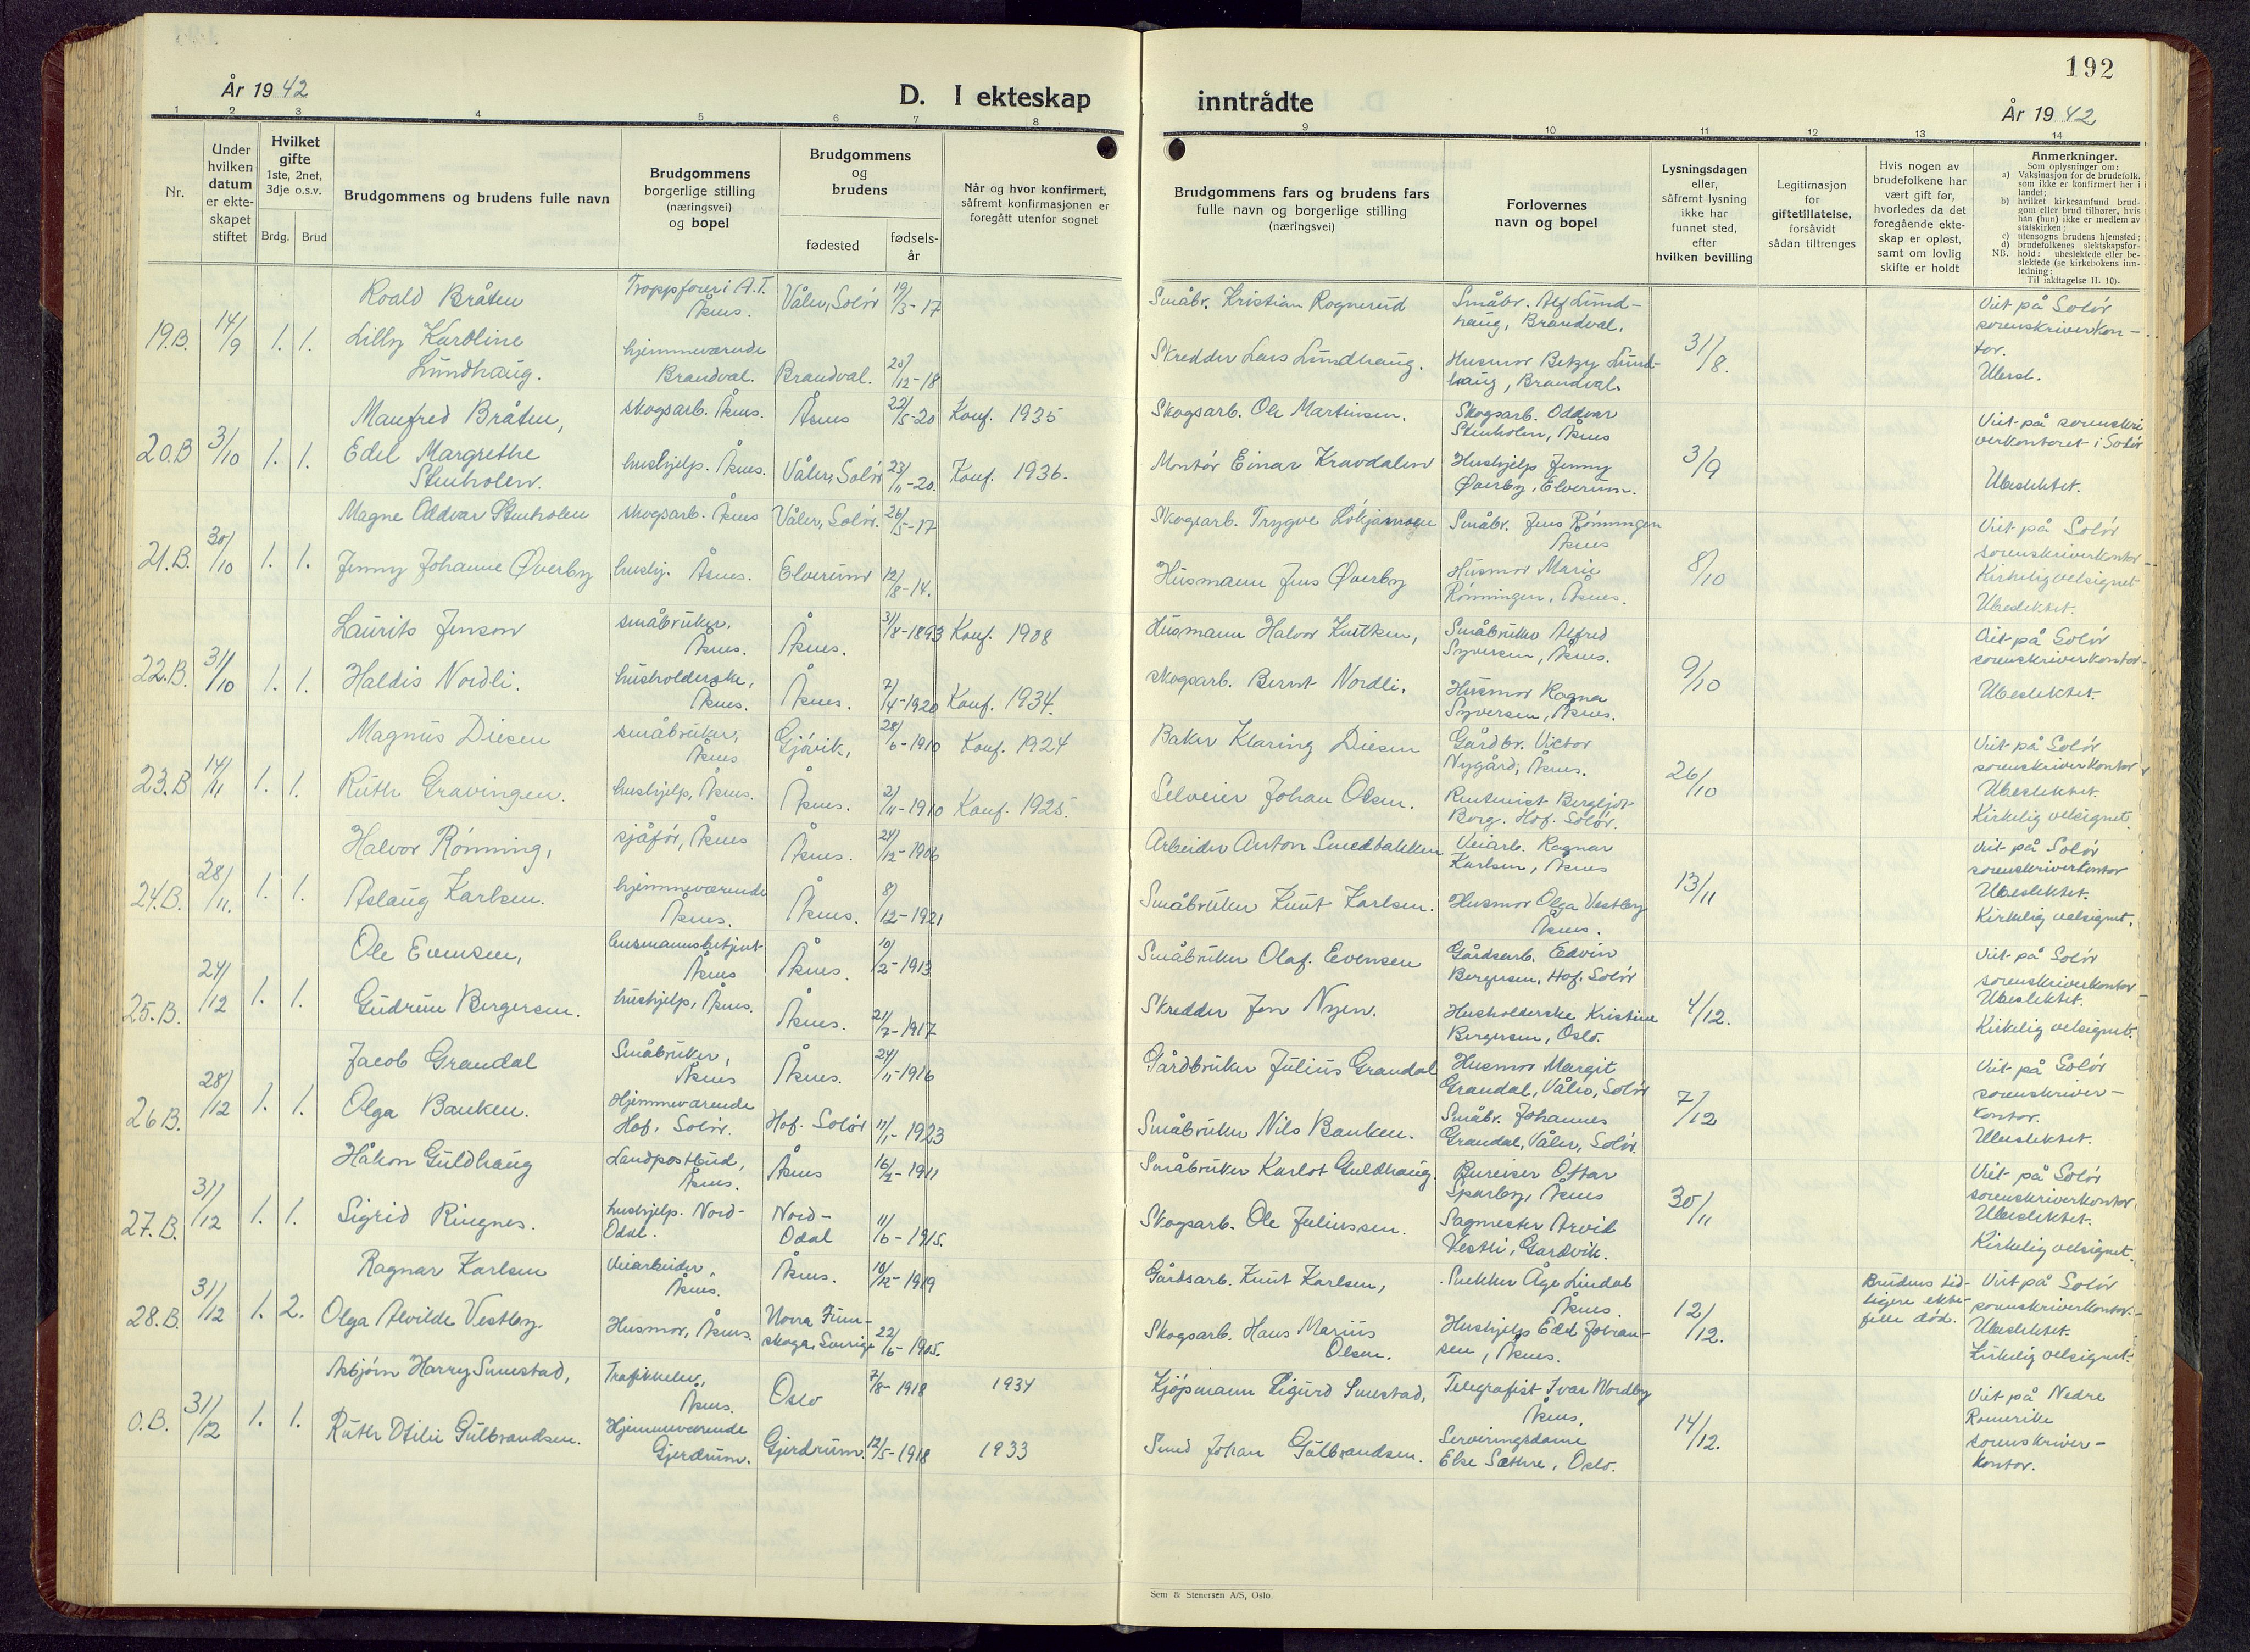 192
År 1942
D. I ekteskap
inntrådte
År 1942
1 2 3 4 5 6 7 8
9 10 11 12 13 14
Nr.
Under
hvilken
datum
er ekte-
skapet
stiftet
Hvilket
gifte
1ste, 2net,
3dje o.s.v.
Brdg. Brud
Brudgommens og brudens fulle navn
Brudgommens
borgerlige stilling
(næringsvei)
og bopel
Brudgommens
og
brudens
fødested
fødsels-
år
Når og hvor konfirmert,
såfremt konfirmasjonen er
foregått utenfor sognet
Brudgommens fars og brudens fars
fulle navn og borgerlige stilling
(næringsvei)
Forlovernes
navn og bopel
Lysningsdagen
eller,
såfremt lysning
ikke har
funnet sted,
efter
hvilken bevilling
Legitimasjon
for
giftetillatelse,
forsåvidt
sådan tiltrenges
Hvis nogen av
brudefolkene har
vært gift før,
hvorledes da det
foregående ekte-
skap er opløst,
samt om lovlig
skifte er holdt
Anmerkninger.
Som oplysninger om:
a) Vaksinasjon for de brudefolk,
som ikke er konfirmert her i
landet;
b) hvilket kirkesamfund brud-
gom eller brud tilhører, hvis
han (hun) ikke er medlem av
statskirken;
c) utensogns brudens hjemsted;
d) brudefolkenes slektskapsfor-
hold: ubeslektede eller be-
slektede (se kirkebokens inn-
ledning:
NB. Til iakttagelse II. 10).
19.B. 14/9 1. 1.
Roald Bråten
Troppfører i A.T.
Åsnes.
Våler, Solør
19/3-17
Småbr. Kristian Rognerud
Småbr. Alf Lund-
haug, Brandval.
31/8.
Viet på Solør
sorenskriverkon-
tor.
Ubesl.
Lilly Karoline
Lundhaug.
hjemmeværende
Brandval.
Brandval.
20/12-18
Skredder Lars Lundhaug.
Husmor Betzy Lund-
haug, Brandval.
20.B 3/10 1. 1.
Manfred Bråten,
skogsarb. Åsnes.
Åsnes
22/5-20
Konf. 1935
Skogsarb. Ole Martinsen.
Skogsarb. Oddvar
Stenholen, Åsnes
3/9
Viet på sorenskri
verkontoret i Solør
Ubeslektet.
Edel Margrethe
Stenholen.
hushjelp. Åsnes.
Våler, Solør
23/11-20.
Konf. 1936.
Montør Einar Kravdalen
Hushjelp Jenny
Øverby, Elverum.
21.B. 30/10 1. 1.
Magne Oddvar Stenholen
skogsarb. Åsnes
Våler, Solør.
26/5-17
Skogsarb. Trygve
Småbr. Jens Rønningen
Åsnes
8/10
Viet på Solør
sorenskriverkontor
Kirkelig velsignet
Ubeslektet.
Jenny Johanne Øverby
hushj. Åsnes.
Elverum
12/8-14.
Husmann Jens Øverby
Husmor Marie
Rønningen, Åsnes.
22.B. 31/10 1. 1.
Laurits Jenson
småbruker,
Åsnes.
Åsnes.
31/8-1893
Konf. 1908
Husmann Halvor
Småbruker Alfred
Syversen, Åsnes.
9/10
Viet på Solør
sorenskriverkontor
Ubeslektet.
Haldis Nordli.
husholderske,
Åsnes.
Åsnes.
7/4-1920
Konf. 1934.
skogsarb. Bernt Nordli.
Husmor Ragna
Syversen, Åsnes.
23.B 14/11 1. 1.
Magnus Diesen
småbruker,
Åsnes
Gjøvik,
28/6-1910
Konf. 1924
Baker Klaring Diesen
Gårdbr. Victor
Nygård, Åsnes.
26/10
Viet på Solør
sorenskriverkontor
Ubeslektet.
Kirkelig velsignet.
Ruth Gravingen.
hushjelp, Åsnes.
Åsnes.
2/11-1910
Konf. 1925.
Selveier Johan Olsen.
Rentenist Bergljot
Borg. Hof. Solør.
24.B. 28/11. 1. 1.
Halvor Rønning,
sjåfør, Åsnes
Åsnes.
24/12-1906
Arbeider Anton Smedbakken
Veiarb. Ragnar
Karlsen, Åsnes
13/11
Viet på Solør
sorenskriverkontor
Ubeslektet.
Kirkelig velsignet.
Aslaug Karlsen.
hjemmeværende
Åsnes.
Åsnes.
8/12-1921
Småbruker Knut Karlsen.
Husmor Olga Vestby
Åsnes.
25.B. 24/12 1. 1.
Ole Evensen,
lensmannsbetjent
Åsnes
Åsnes.
10/2-1913
Småbruker Olaf. Evensen
Gårdsarb. Edvin
Bergersen, Hof. Solør
4/12.
Viet på Solør
sorenskriverkontor
Ubeslektet.
Kirkelig velsignet.
Gudrun Bergersen.
hushjelp, Åsnes.
Åsnes.
21/7-1917
Skredder Jon Nyen.
Husholderske Kristine
Bergersen, Oslo.
26 B. 28/12 1. 1.
Jacob Grandal
Småbruker,
Åsnes
Åsnes.
24/11-1916
Gårdbruker Julius Grandal
Husmor Margit
Grandal, Våler, Solør
7/12
Viet på Solør
sorenskriver-
kontor.
Ubeslektet.
Olga Banken.
Hjemmeværende
Hof, Solør.
Hof. Solør
11/1-1923
Småbruker Nils Banken.
Småbr. Johannes
Grandal, Våler, Solør.
27.B. 31/12 1. 1.
Håkon Guldhaug
Landpostbud,
Åsnes.
Åsnes
16/2-1911
Småbruker Karlot Guldhaug.
Bureiser Ottar
Sparby, Åsnes
30/11
Viet på Solør
sorenskriverkontor,
Ubeslektet.
Kirkelig velsignet.
Sigrid Ringnes.
hushjelp. Nord-
Odal.
Nord-
Odal
11/6-1915.
Skogsarb. Ole Juliussen.
Sagmester Arvid
Vestli, Gardvik.
28.B. 31/12 1. 2.
Ragnar Karlsen
Veiarbeider,
Åsnes.
Åsnes.
10/12-1919
Gårdsarb. Knut Karlsen,
Snekker Åge Lindal
Åsnes.
12/12.
Brudens tid-
ligere ekte-
felle død.
Viet på Solør
sorenskriverkontor.
Ubeslektet.
Kirkelig velsignet.
Olga Alvilde Vestby.
Husmor, Åsnes.
Norra Finn-
skoga, Sverige
22/6-1905.
Skogsarb. Hans Marius
Olsen.
Hushjelp Edel Johan-
sen, Åsnes.
0.B. 31/12 1. 1.
Asbjørn Harry Smestad,
Trafikkelev,
Åsnes.
Oslo
7/8-1918
1934
Kjøpmann Sigurd Smestad,
Telegrafist Ivar Nordby
Åsnes.
14/12.
Viet på Nedre
Romerike
sorenskriver-
kontor.
Ruth Otilie Gulbrandsen.
Hjemmeværende
Gjerdrum.
Gjerdrum.
12/5-1918
1933
Smed Johan Gulbrandsen.
Serveringsdame
Else Sæthre, Oslo.
Sem & Stenersen A/S, Oslo.